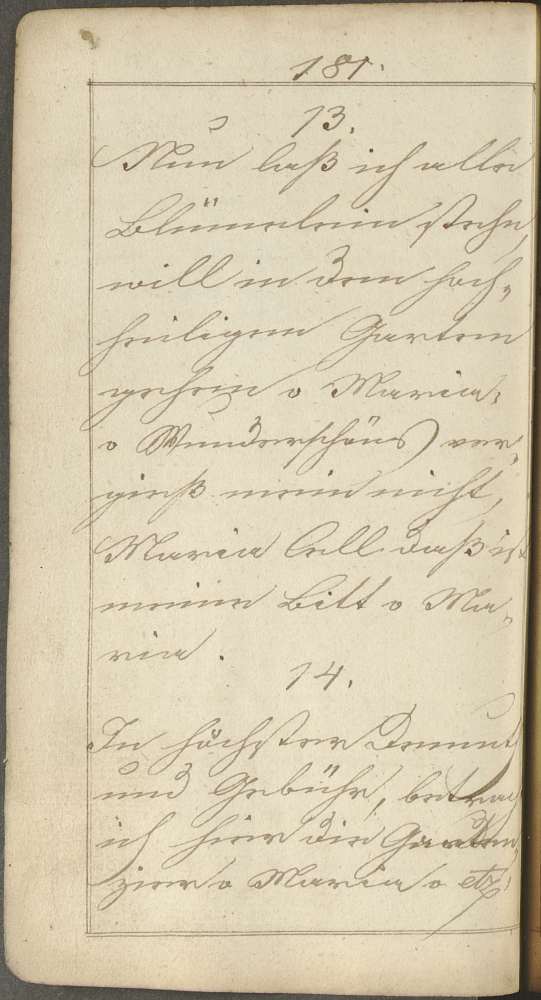 181.
13.
Nun laß ich alle
Blümelein stehn,
will in dem hoch-
heiligem Gartem
gehem o Maria,
o Wunderschöns ver-
gieß mein nicht,
Maria Cell daß ist
meine Bitt o Ma-
ria.
14.
In höchster Demut
und Gebühr, betrach
ich hier die Garten
zier o Maria o etz.